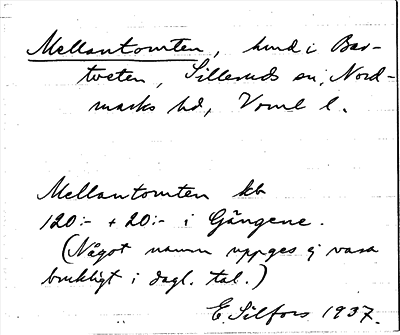 Mellantomten, hmd i Bar-
tveten, Silleruds sn, Nord-
marks hd, Vrml l.
Mellantomten kb
120:- + 20:- i Gängene.
(Något namn uppges ej vara
brukligt i dagl. tal.)
E. Silfors 1937.